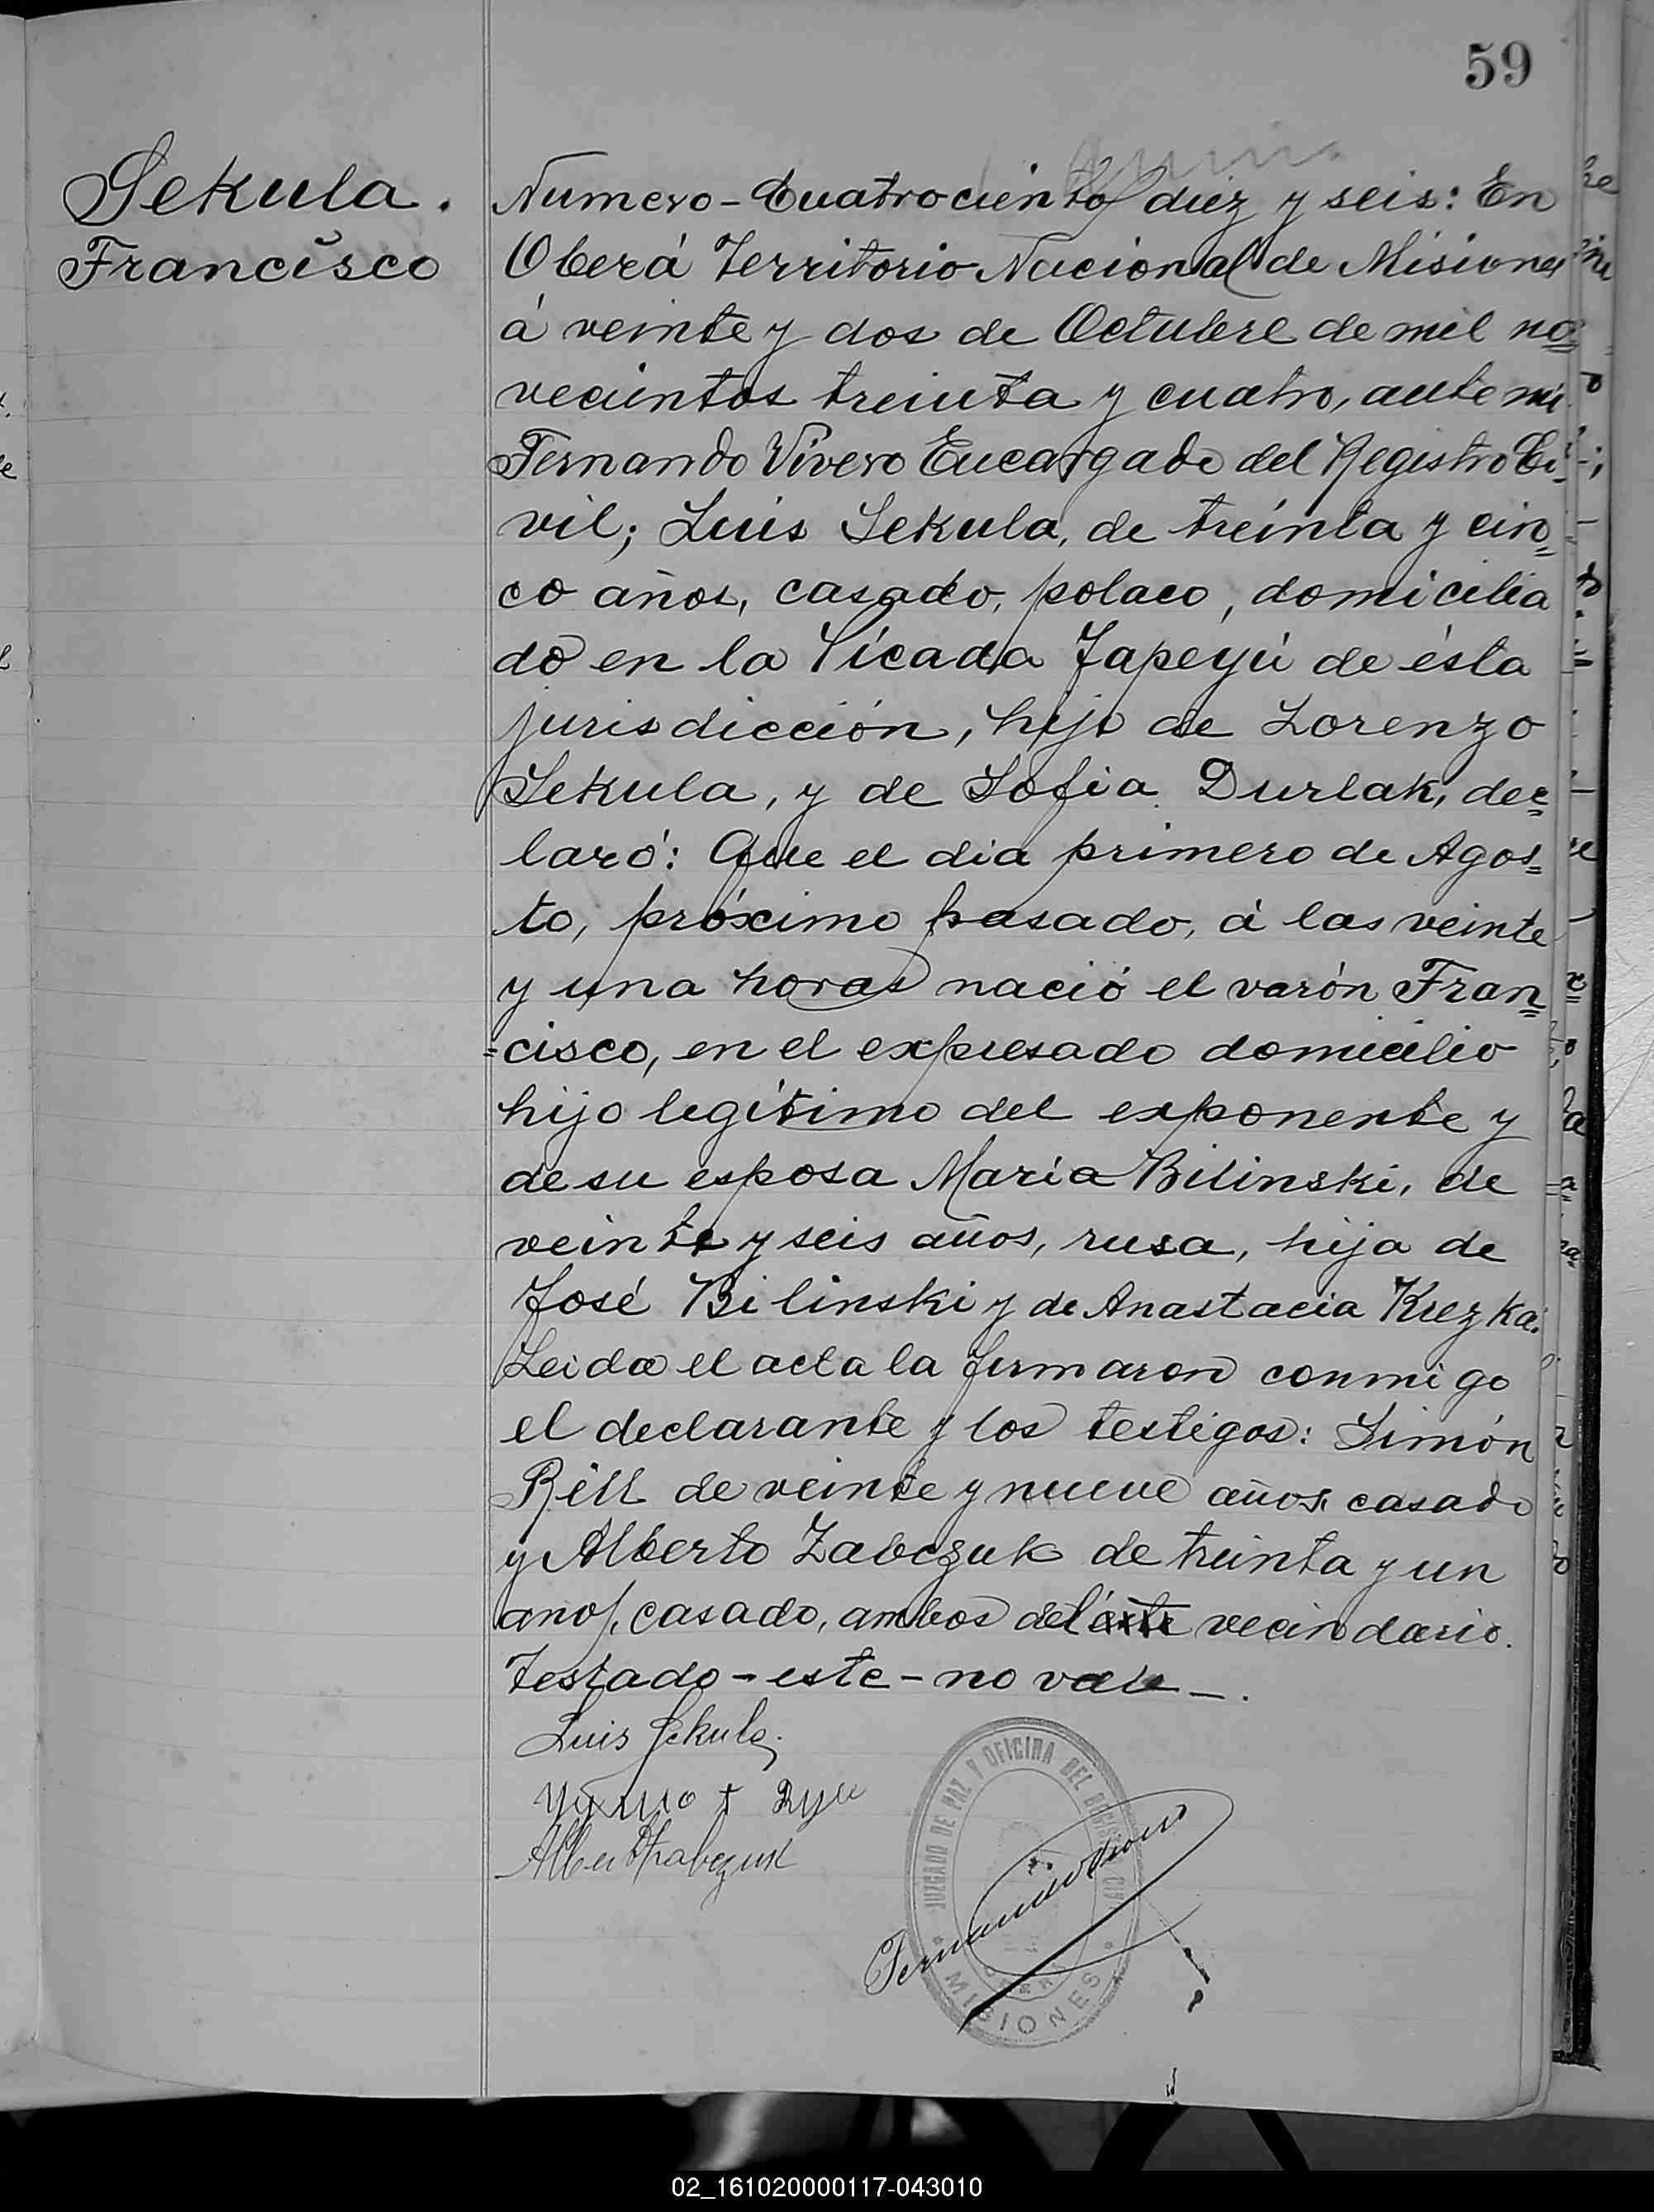 59
Sekula.
Francisco
Numero-Cuatrociento diez y seis: En
Oberá Territorio Nacional de Misiones
á veinte y dos de Octubre de mil no=
vecientos treinta y cuatro, ante mi
Fernando Vivero Encargado del Registro Ci=
vil; Luis Sekula, de treinta y cin=
co años, casado, polaco, domicilia
do en la Picada Yapeyú de ésta
jurisdicción, hijo de Lorenzo
Sekula, y de Sofia Durlak, dec=
laró: Que el dia primero de Agos=
to, próximo pasado, á las veinte
y una horas nació el varón Fran=
=cisco, en el expresado domicilio
hijo legítimo del exponente y
de su esposa Maria Bilinski, de
veinte y seis años, rusa, hija de
José Bilinski y de Anastacia Kuzka.
Leida el acta la firmaron conmigo
el declarante y los testigos: Simón
Rill de veinte y nueve años, casado
y Alberto Zabczuk de treinta y un
años, casado, ambos del este vecindario.
Testado-este-no vale-.
Luis Sekula.
JUZGADO DE PAZ Y OFICINA DEL REGISTRO CIVIL
OBERÁ
MISIONES
02_161020000117-043010